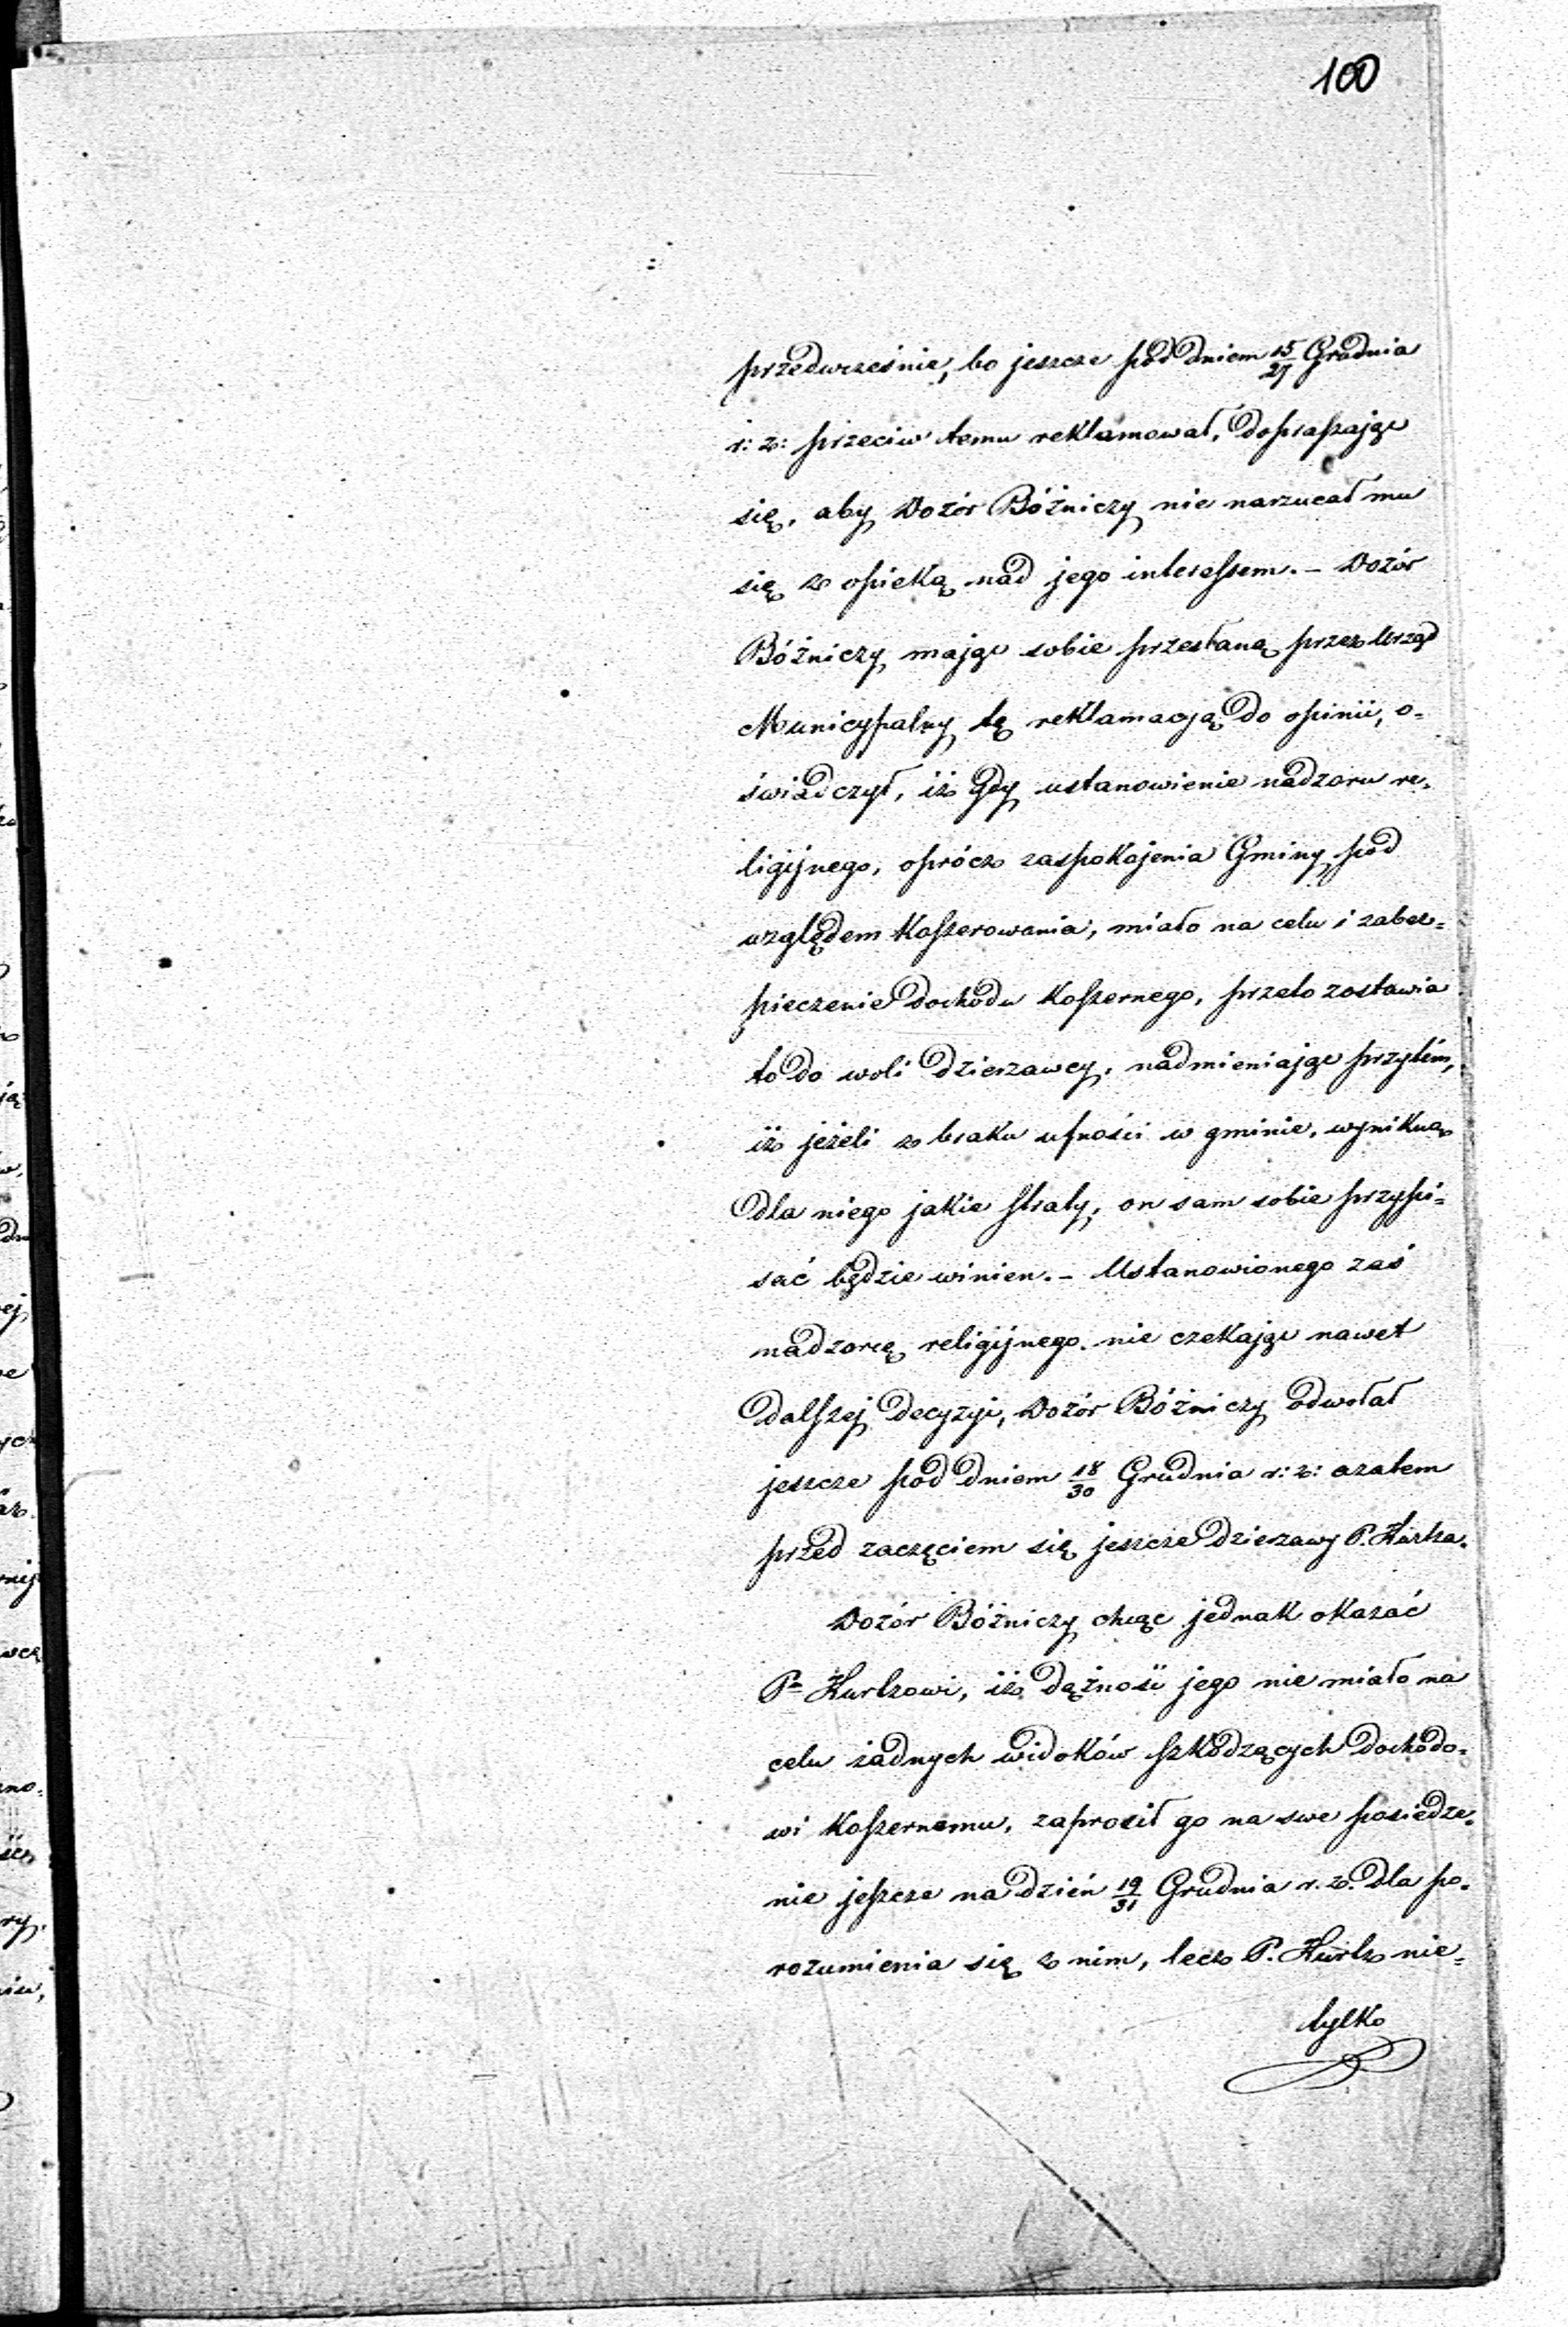 100
przedwcześnie, bo jeszcze pod dniem 15/27 Grudnia
r: z: przeciw temu reklamował, dopraszając
się, aby Dozór Bóżniczy nie narzucał mu
się z opieką nad jego interessem. – Dozór
Bóżniczy mając sobie przesłaną przez Urząd
Municypalny tę reklamacyą do opinii, o=
świadczył, iż gdy ustanowienie nadzoru re=
ligijnego, oprócz zaspokojenia Gminy pod
względem koszerowania, miało na celu i zabez=
pieczenie dochodu koszernego, przeto zostawia
to do woli dzierzawcy, nadmieniając przytém,
iż jeżeli z braku ufności w gminie, wynikną
dla niego jakie straty, on sam sobie przypi=
sać będzie winien. – Ustanowionego zaś
nadzorcę religijnego nie czekając nawet
dalszej decyzyi, Dozór Bóżniczy odwołał
jeszcze pod dniem 18/30 Grudnia r: z: azatem
przed zaczęciem się jeszcze dzierzawy P. Kurtza.
Dozór Bóżniczy chcąc jednak okazać
Pu Kurtzowi, iż dążność jego nie miało na
celu żadnych widoków szkodzących dochodo=
wi koszernemu, zaprosił go na swe posiedze=
nie jeszcze na dzień 19/31 Grudnia r. z. dla po=
rozumienia się z nim, lecz P. Kurtz nie=
tylko